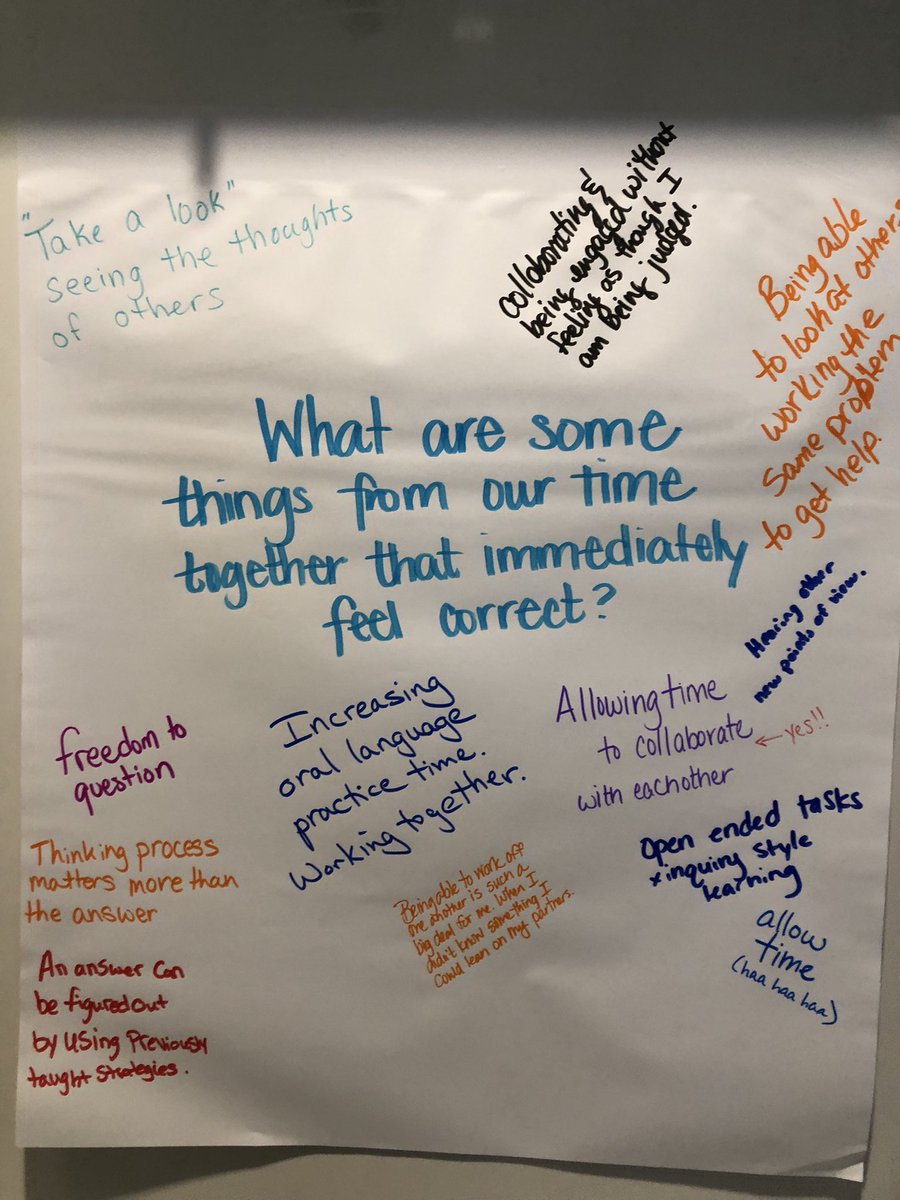 "Take a look"
seeing the thoughts
of others
Collaborating &
being engaged without
feeling as though I
am Being judged.
Being able
to look at others
working the
Same problem
to get help.
What are some
things from our time
together that immediately
feel correct?
Hearing other
new points of view.
freedom to
question
Increasing
oral language
practice time.
Working together.
Allowing time
to collaborate ← yes!!
with eachother
Thinking process
matters more than
the answer
Being able to work off
one another is such a
big deal for me. When I
didn't know something I
could lean on my partners.
Open ended tasks
+ inquiry style
learning
allow
time
(haa haa haa)
An answer can
be figured out
by using Previously
taught strategies.